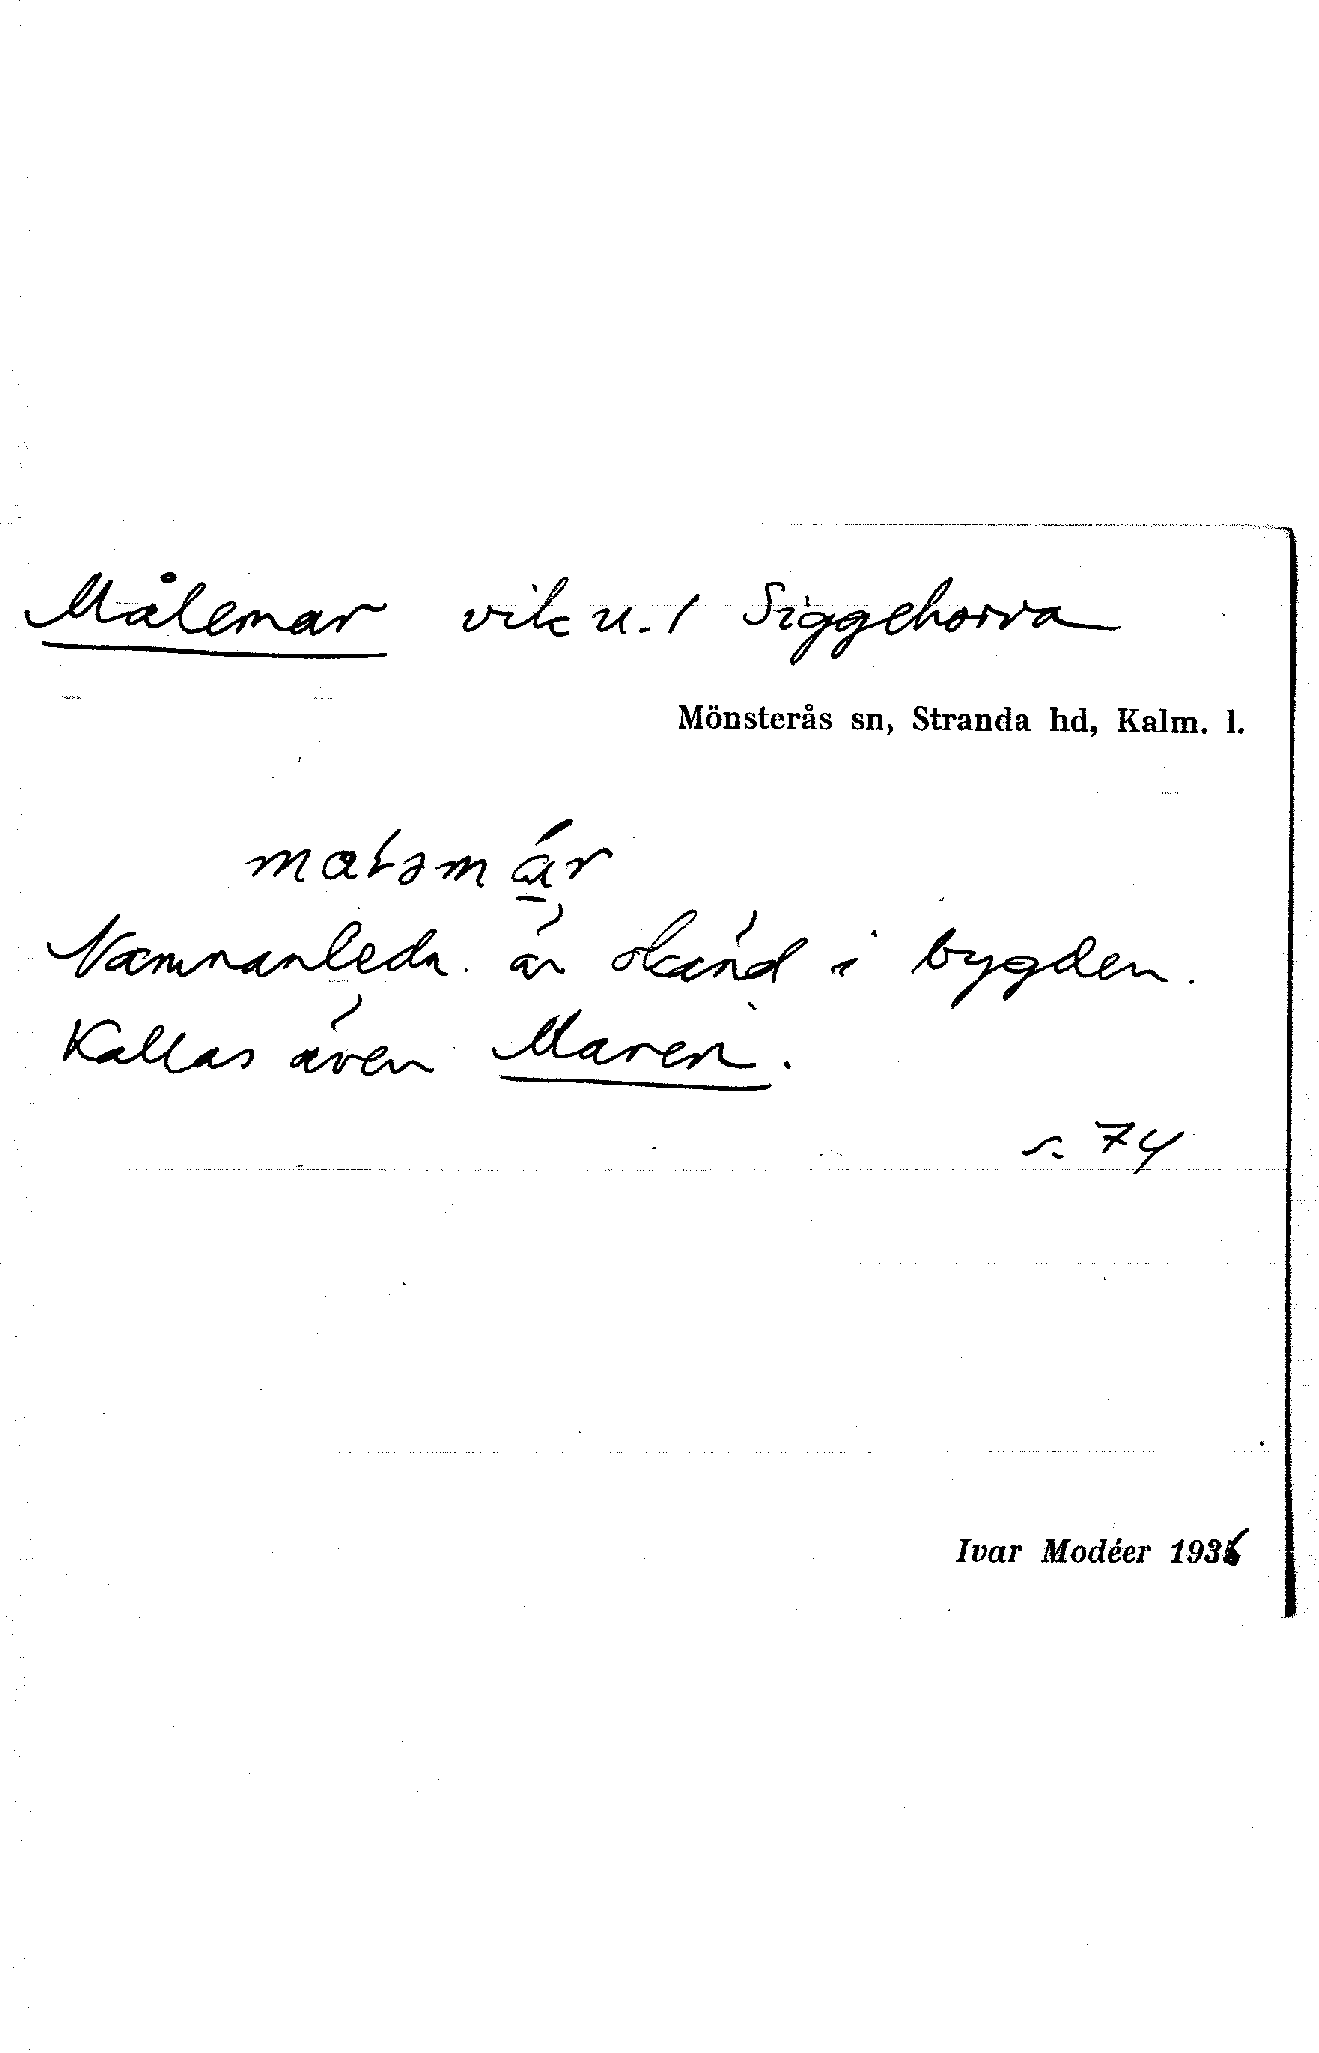 Målemar vik u. / Siggehorva
Mönsterås sn, Stranda hd, Kalm. l.
Namnanledn. är okänd i bygden.
Kallas även Maren.
s. 74
Ivar Modéer 1936